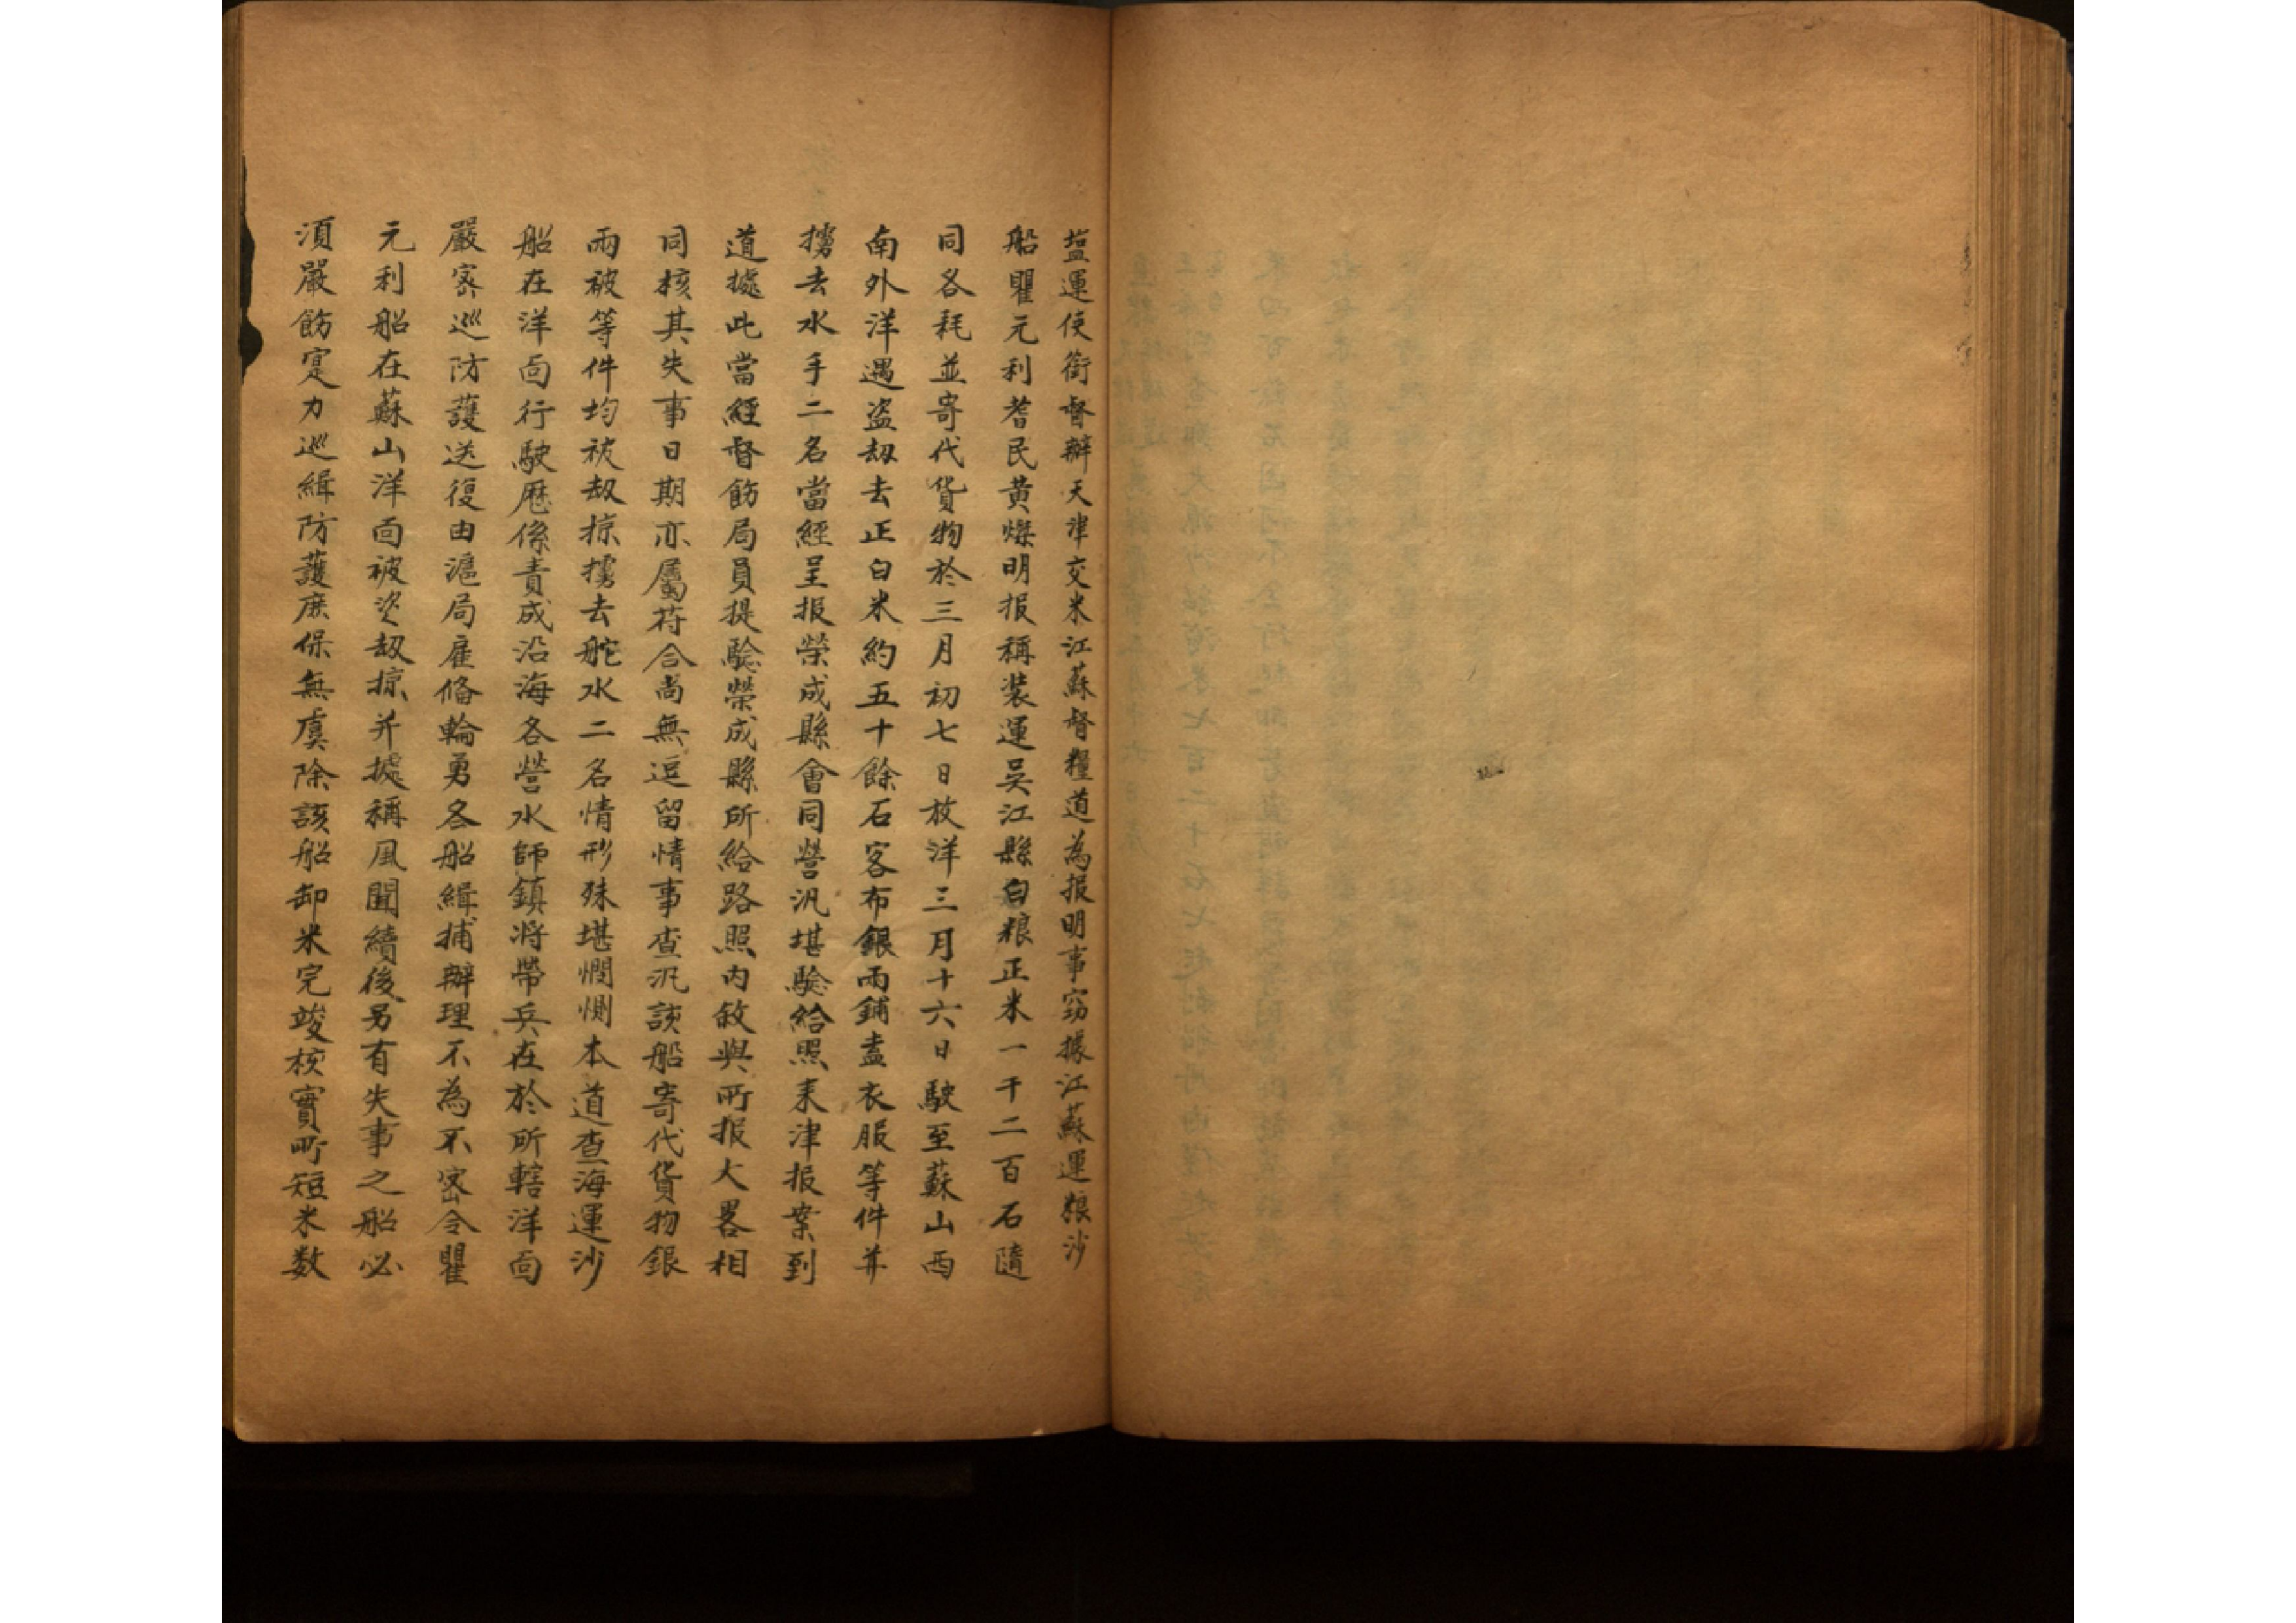 塩運使銜督辦天津交米江蘇督糧道為报明事窃據江蘇運粮沙
船瞿元利耆民黄燦明报稱装運吴江縣白粮正米一千二百石隨
同各耗並寄代貨物於三月初七日放洋三月十六日駛至蘇山西
南外洋遇盗刼去正白米約五十餘石客布銀兩鋪盖衣服等件并
擄去水手二名當經呈报榮成縣會同營汛堪驗給照来津报案到
道據此當經督飭局員提驗榮成縣所給路照内敘與所报大畧相
同核其失事日期亦屬符合尚無逗留情事查汛該船寄代貨物銀
兩被等件均被刼掠擄去舵水二名情形殊堪憫惻本道查海運沙
船在洋面行駛歷係責成沿海各營水師鎮将帶兵在於所轄洋面
嚴密巡防護送復由滬局雇俻輪勇各船緝捕辦理不為不密今瞿
元利船在蘇山洋面被盗刼掠并據稱風聞續後另有失事之船必
須嚴飭寔力巡緝防護庶保無虞除該船卸米完竣核實所短米数